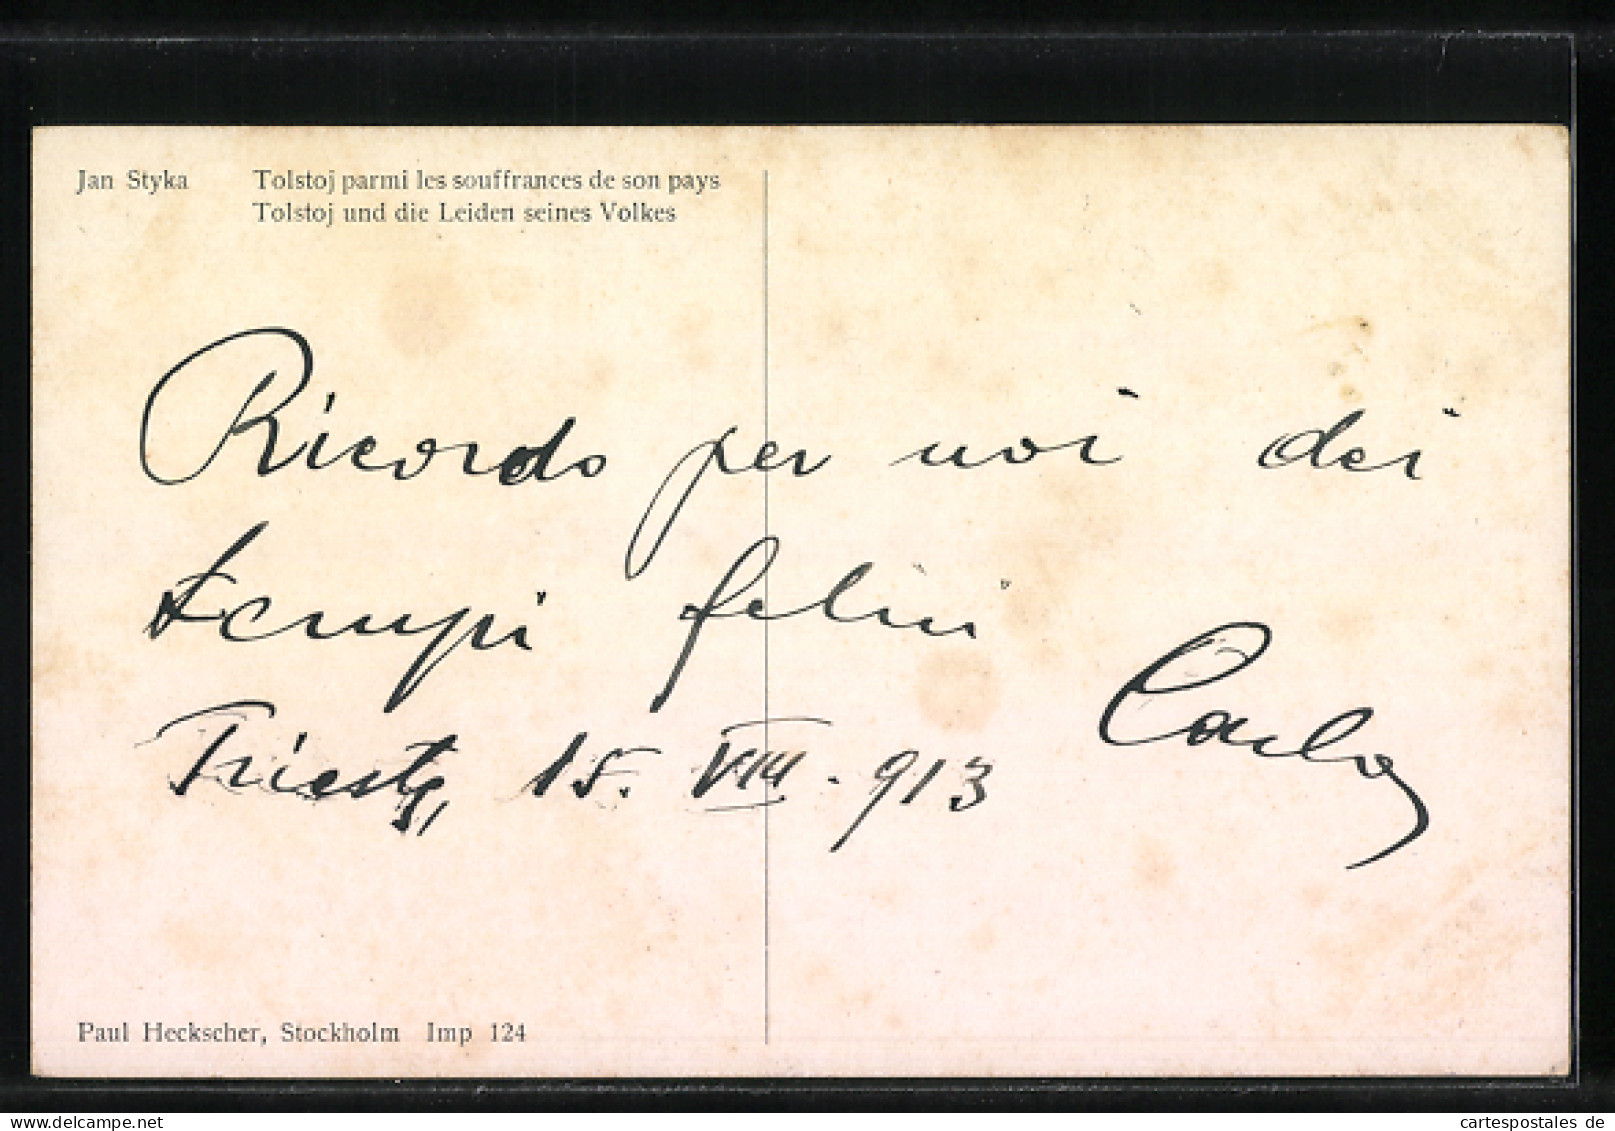 Jan Styka Tolstoj parmi les souffrances de son pays
Tolstoj und die Leiden seines Volkes
Ricordo per noi dei
tempi felici
Carlo
Trieste, 15. VIII. 913
Paul Heckscher, Stockholm Imp 124
cartespostales de